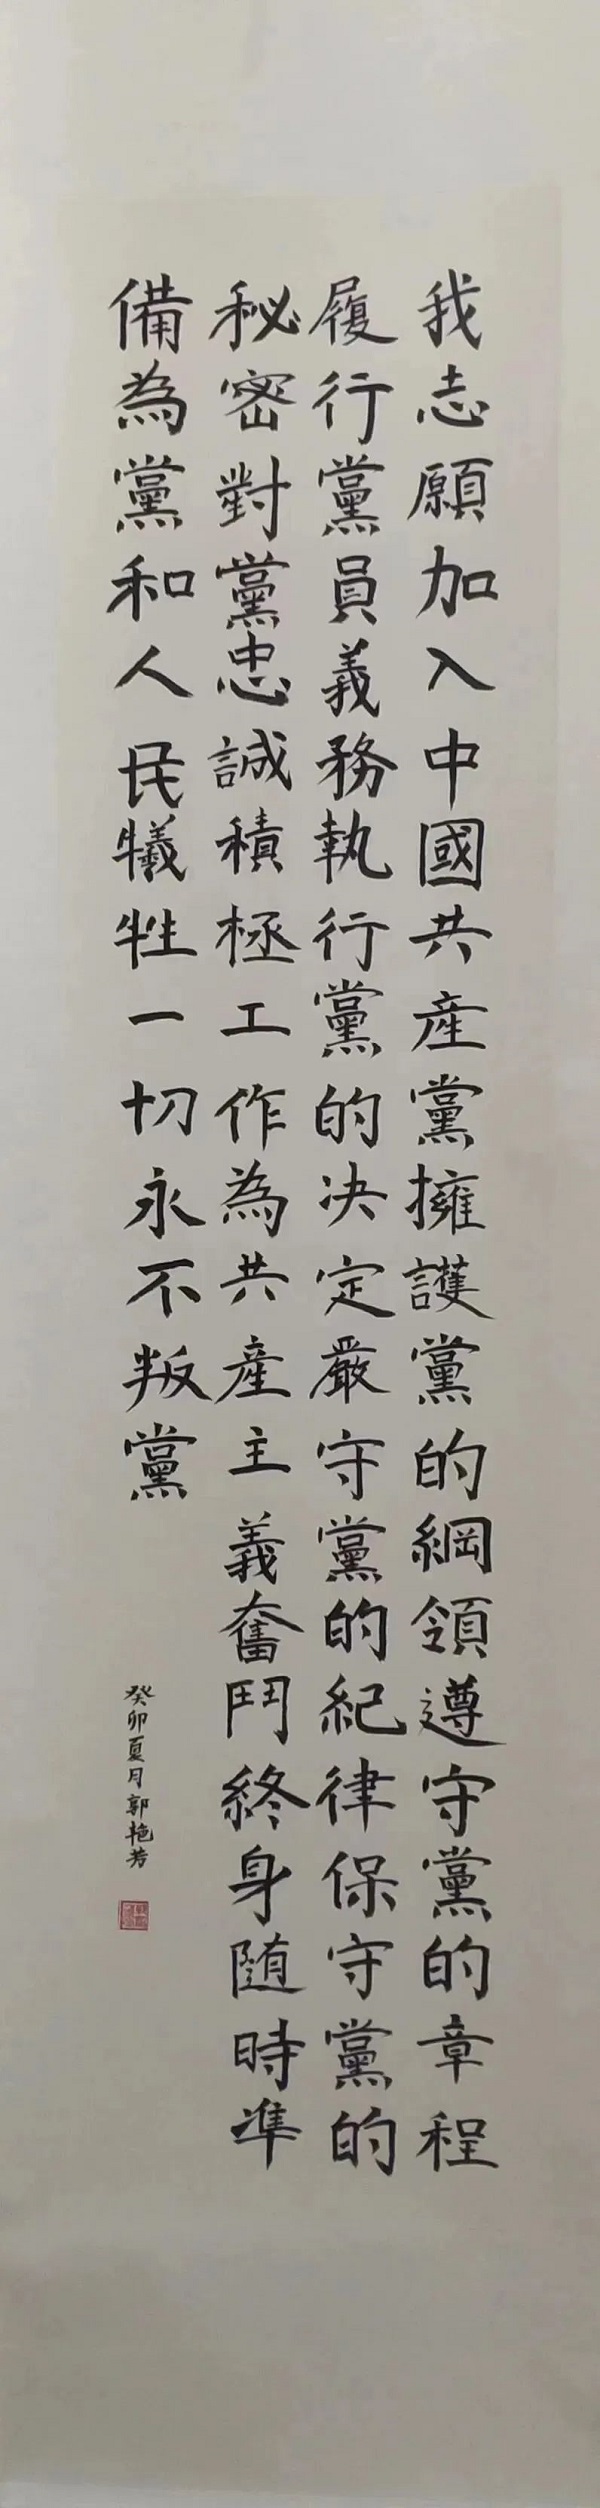 我志願加入中國共産黨擁護黨的綱領遵守黨的章程
履行黨員義務執行黨的决定嚴守黨的紀律保守黨的
秘密對黨忠誠積極工作為共産主義奮鬥終身随時準
備為黨和人民犠牲一切永不叛黨
癸卯夏月郭艳芳